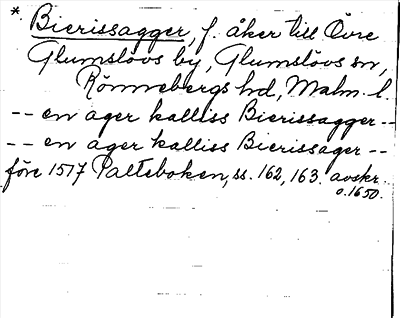 * Bierissagger, f. åker till Övre
Glumslövs by, Glumslövs sn,
Rönnebergs hd, Malm. l.
-- en ager kalliss Bierissagger --
-- en ager kalliss Bierissager --
före 1517 Palteboken, ss. 162, 163. avskr.
o. 1650.